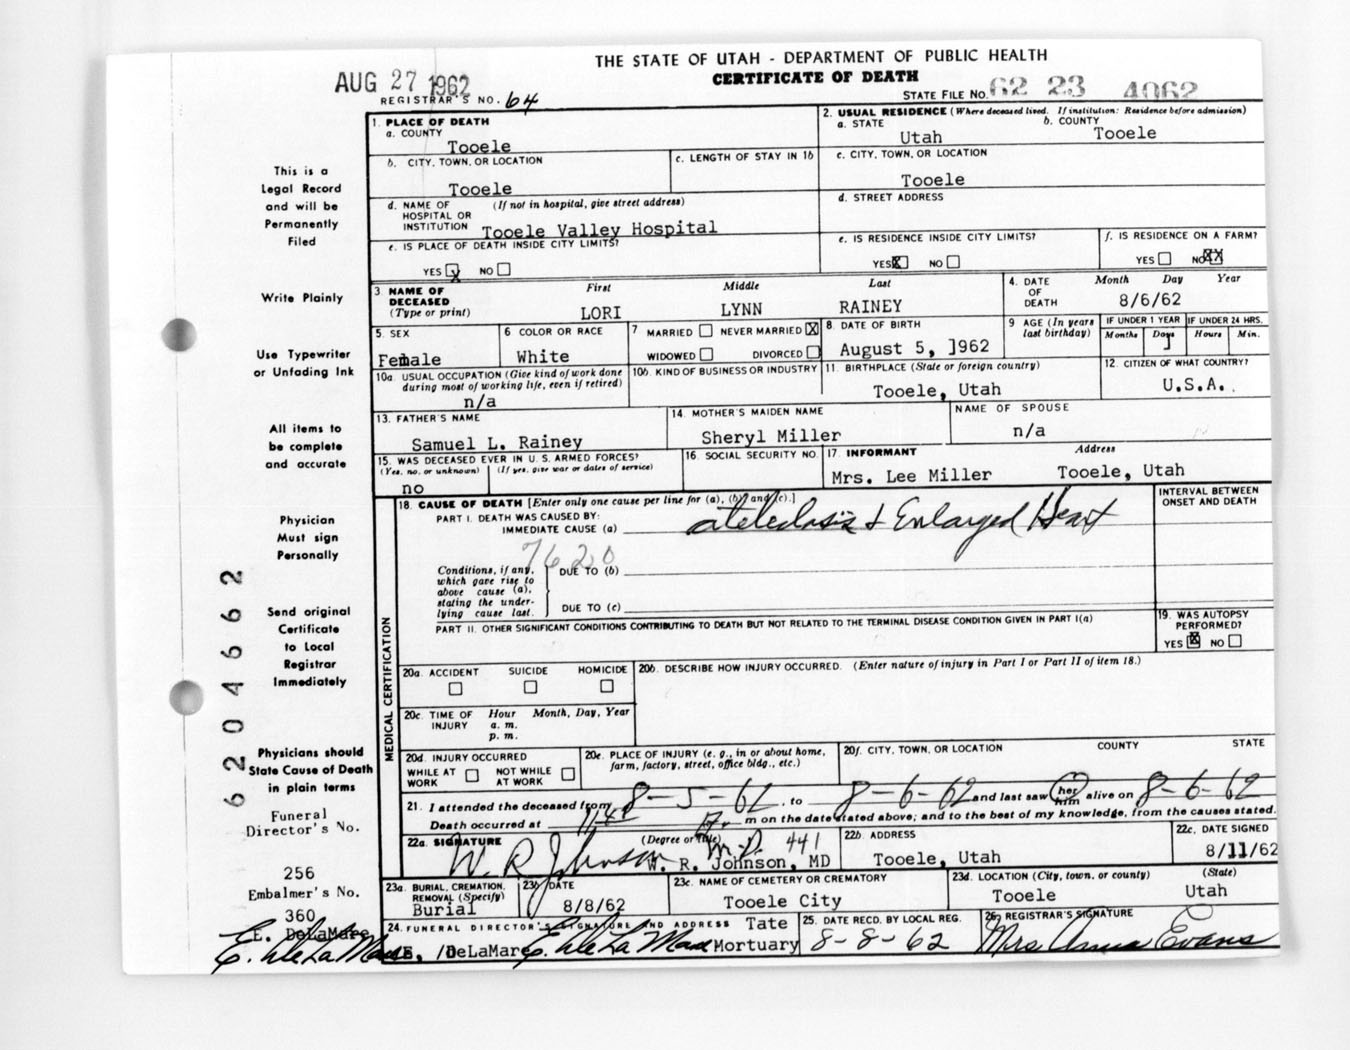 THE STATE OF UTAH - DEPARTMENT OF PUBLIC HEALTH
CERTIFICATE OF DEATH
AUG 27 1962
REGISTRAR'S NO. 64
STATE FILE NO. 62 23 4062
This is a
Legal Record
and will be
Permanently
Filed
Write Plainly
Use Typewriter
or Unfading Ink
All items to
be complete
and accurate
Physician
Must sign
Personally
Send original
Certificate
to Local
Registrar
Immediately
Physicians should
State Cause of Death
in plain terms
Funeral
Director's No.
256
Embalmer's No.
360
E. DeLaMare
E. DeLaMare
6204662
1. PLACE OF DEATH
a. COUNTY
Tooele
2. USUAL RESIDENCE (Where deceased lived. If institution: Residence before admission)
a. STATE b. COUNTY
Utah Tooele
b. CITY, TOWN, OR LOCATION
Tooele
c. LENGTH OF STAY IN 1b
c. CITY, TOWN, OR LOCATION
Tooele
d. NAME OF (If not in hospital, give street address)
HOSPITAL OR
INSTITUTION Tooele Valley Hospital
d. STREET ADDRESS
e. IS PLACE OF DEATH INSIDE CITY LIMITS?
YES X NO
e. IS RESIDENCE INSIDE CITY LIMITS?
YES X NO
f. IS RESIDENCE ON A FARM?
YES NO XX
3. NAME OF DECEASED
(Type or print)
First Middle Last
LORI LYNN RAINEY
4. DATE OF DEATH
Month Day Year
8/6/62
5. SEX
Female
6. COLOR OR RACE
White
7 MARRIED NEVER MARRIED X
WIDOWED DIVORCED
8. DATE OF BIRTH
August 5, 1962
9 AGE (In years last birthday)
IF UNDER 1 YEAR IF UNDER 24 HRS.
Months Days Hours Min.
1
10a. USUAL OCCUPATION (Give kind of work done
during most of working life, even if retired)
n/a
10b. KIND OF BUSINESS OR INDUSTRY
11. BIRTHPLACE (State or foreign country)
Tooele, Utah
12. CITIZEN OF WHAT COUNTRY?
U.S.A.
13. FATHER'S NAME
Samuel L. Rainey
14. MOTHER'S MAIDEN NAME
Sheryl Miller
NAME OF SPOUSE
n/a
15. WAS DECEASED EVER IN U.S. ARMED FORCES?
(Yes, no, or unknown) (If yes, give war or dates of service)
no
16. SOCIAL SECURITY NO.
17. INFORMANT Address
Mrs. Lee Miller Tooele, Utah
MEDICAL CERTIFICATION
18. CAUSE OF DEATH [Enter only one cause per line for (a), (b), and (c).]
INTERVAL BETWEEN
ONSET AND DEATH
PART I. DEATH WAS CAUSED BY:
IMMEDIATE CAUSE (a) atelectasis & Enlarged Heart
7620
Conditions, if any,
which gave rise to
above cause (a),
stating the under-
lying cause last.
DUE TO (b)
DUE TO (c)
PART II. OTHER SIGNIFICANT CONDITIONS CONTRIBUTING TO DEATH BUT NOT RELATED TO THE TERMINAL DISEASE CONDITION GIVEN IN PART I(a)
19. WAS AUTOPSY
PERFORMED?
YES X NO
20a. ACCIDENT SUICIDE HOMICIDE
20b. DESCRIBE HOW INJURY OCCURRED. (Enter nature of injury in Part I or Part II of item 18.)
20c. TIME OF INJURY
Hour Month, Day, Year
a. m.
p. m.
20d. INJURY OCCURRED
WHILE AT WORK NOT WHILE AT WORK
20e. PLACE OF INJURY (e. g., in or about home,
farm, factory, street, office bldg., etc.)
20f. CITY, TOWN, OR LOCATION COUNTY STATE
21. I attended the deceased from 8-5-62, to 8-6-62 and last saw her him alive on 8-6-62
Death occurred at m on the date stated above; and to the best of my knowledge, from the causes stated.
22a. SIGNATURE (Degree or title)
W. R. Johnson M.D. 441
W. R. Johnson, MD
22b. ADDRESS
Tooele, Utah
22c. DATE SIGNED
8/11/62
23a. BURIAL, CREMATION,
REMOVAL (Specify)
Burial
23b. DATE
8/8/62
23c. NAME OF CEMETERY OR CREMATORY
Tooele City
23d. LOCATION (City, town, or county) (State)
Tooele Utah
24. FUNERAL DIRECTOR'S SIGNATURE AND ADDRESS Tate
E. DeLaMare E. DeLaMare Mortuary
25. DATE RECD. BY LOCAL REG.
8-8-62
26. REGISTRAR'S SIGNATURE
Mrs Anna Evans